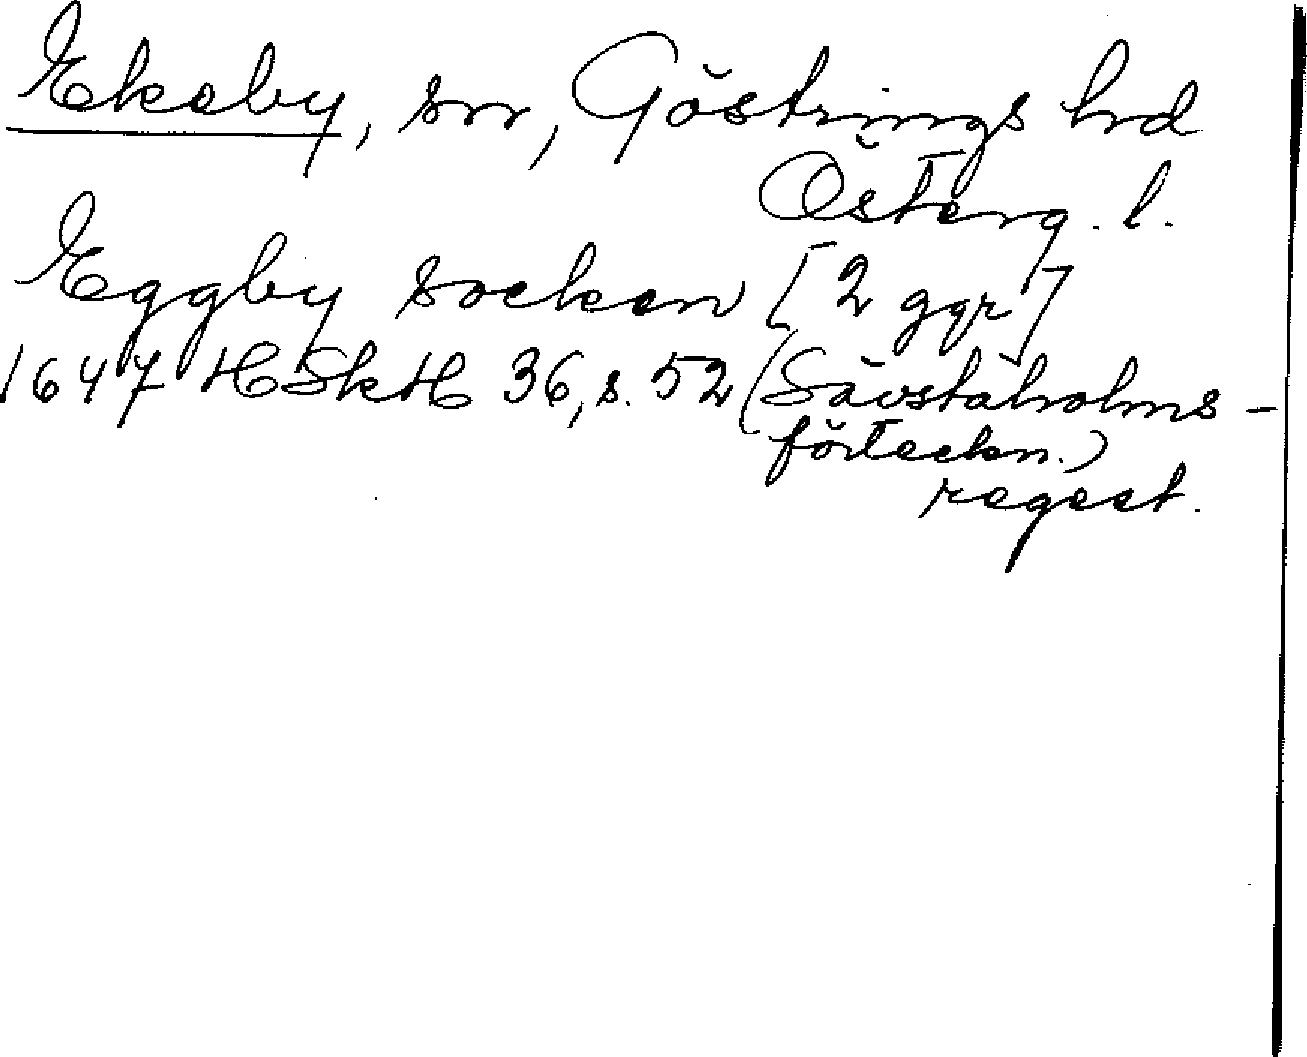 Ekeby, sn, Göstrings hrd
Österg. l.
Eggby socken [2 ggr]
1647 HSkH 36, s. 52 (Sävstaholms-
förteckn.)
regest.